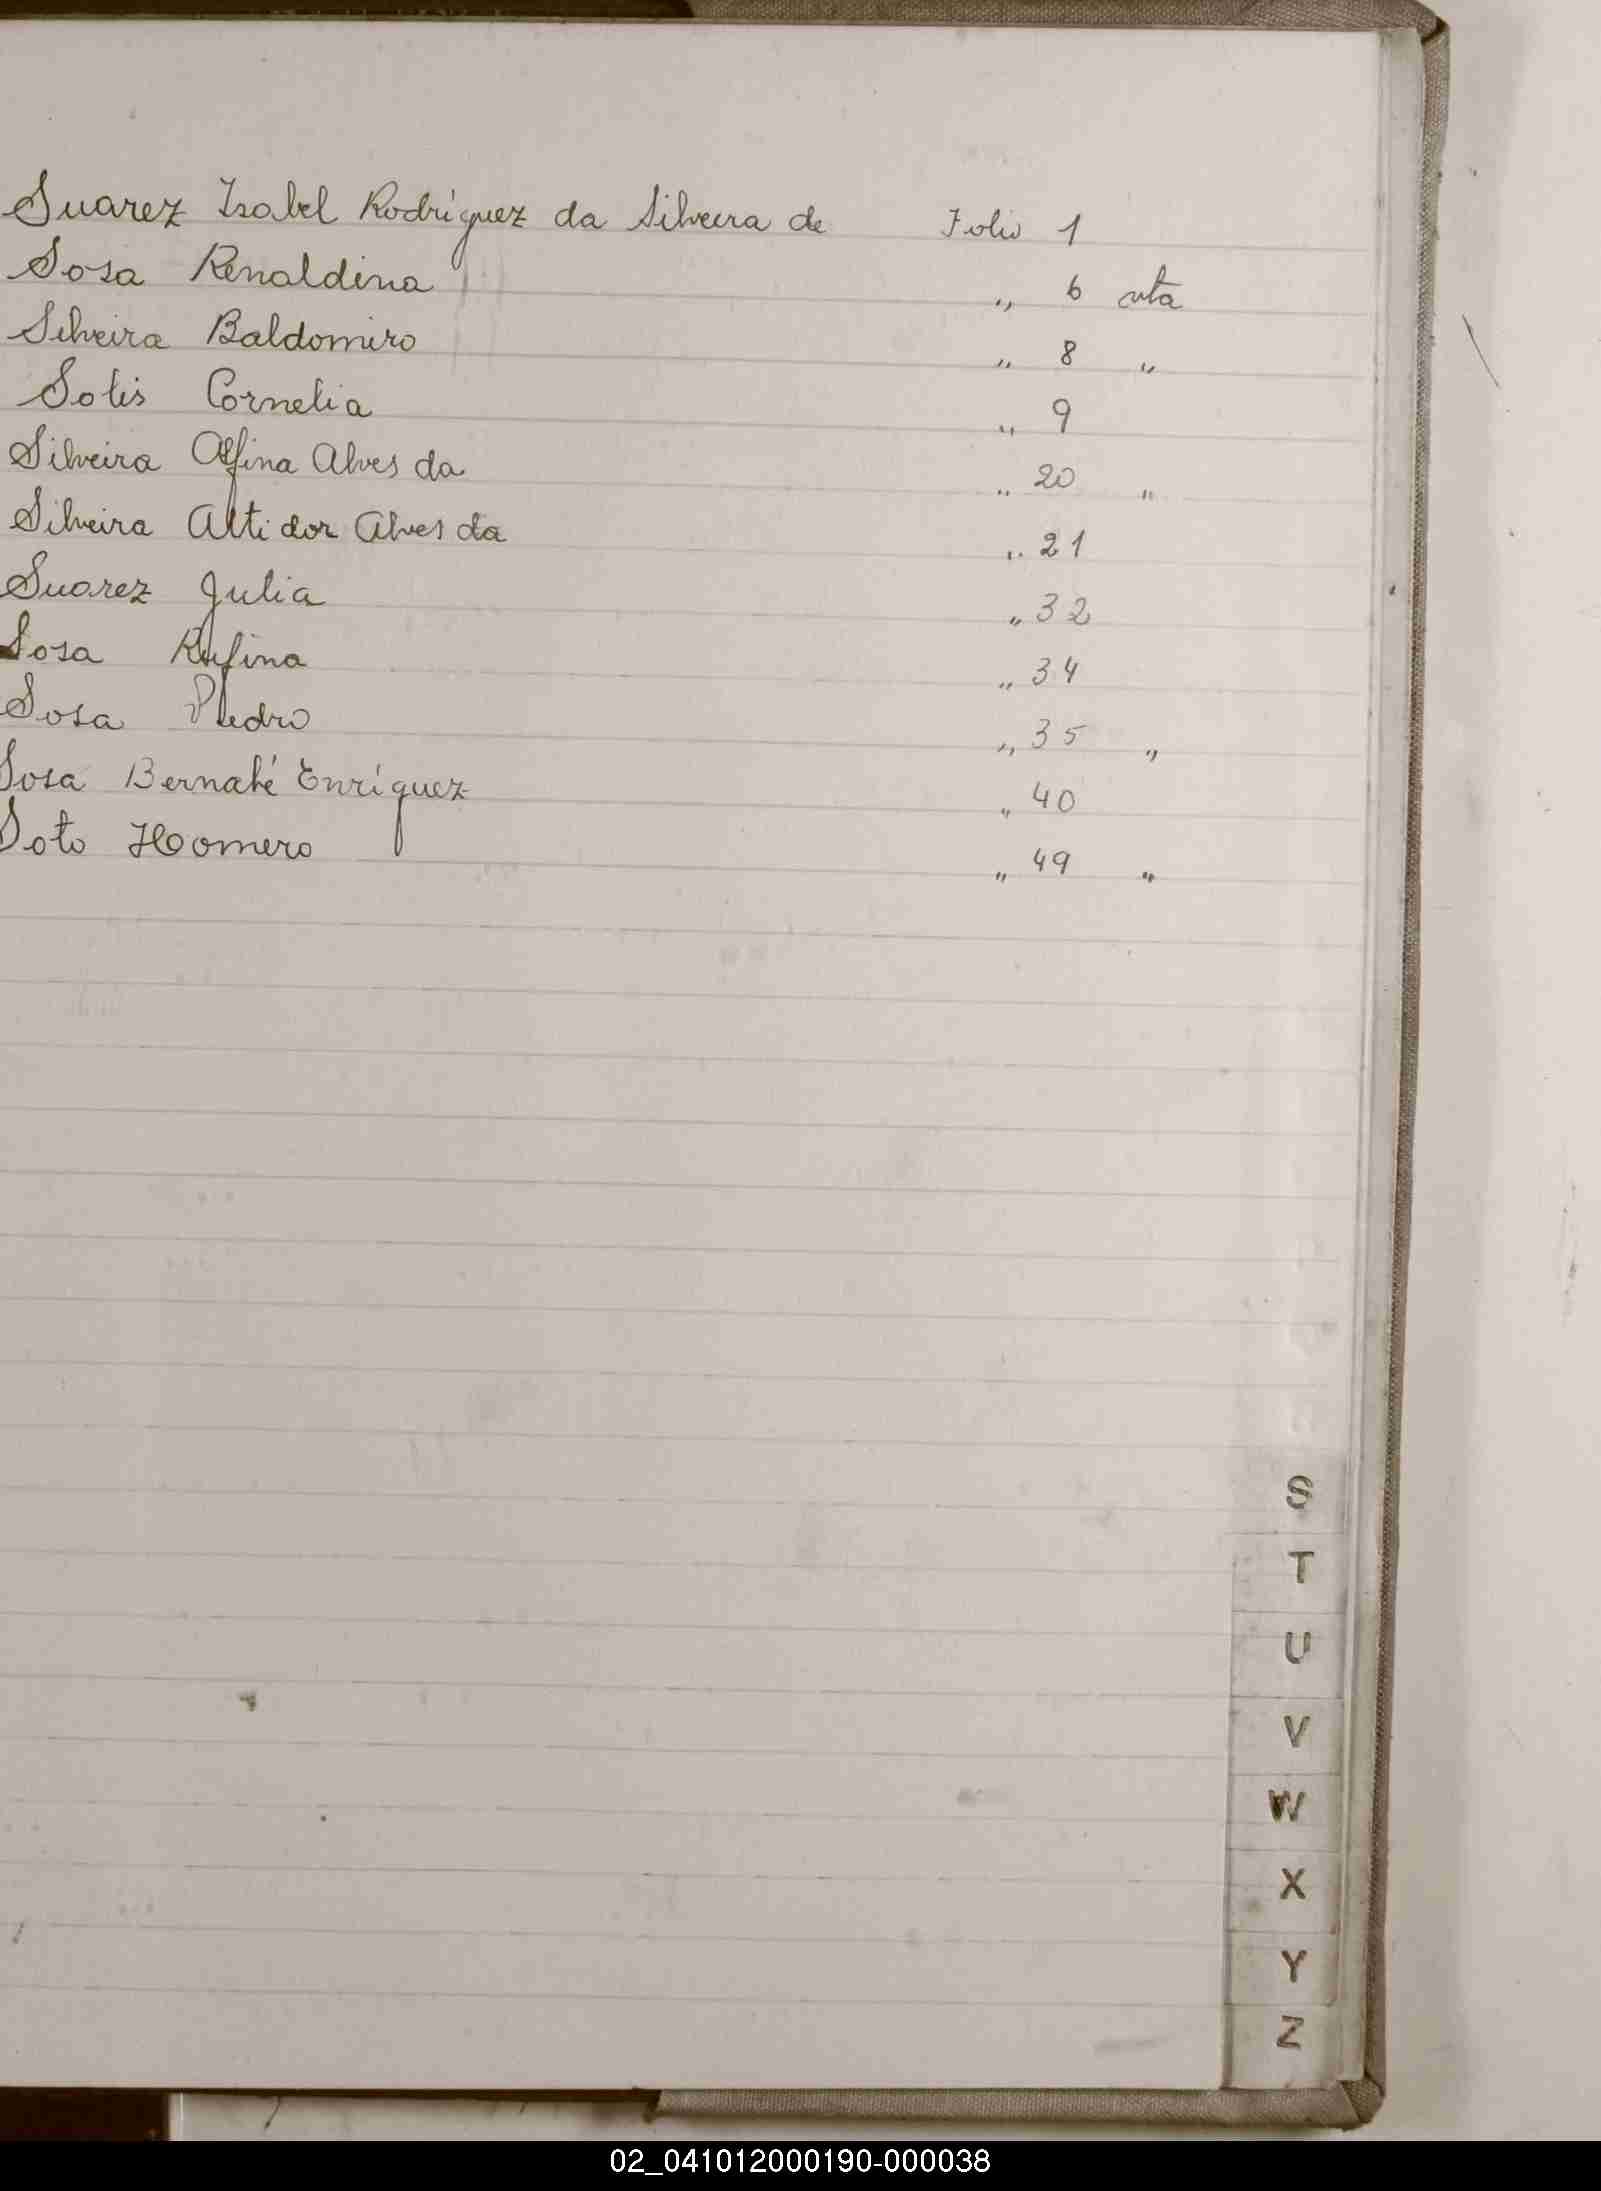 Suarez Isabel Rodríguez da Silveira de Folio 1
Sosa Renaldina " 6 vta
Silveira Baldomiro " 8 "
Solis Cornelia " 9
Silveira Alfina Alves da " 20 "
Silveira Altidor Alves da " 21
Suarez Julia " 32
Sosa Rufina " 34
Sosa Pedro " 35 "
Sosa Bernabé Enríquez " 40
Soto Homero " 49 "
S
T
U
V
W
X
Y
Z
02_041012000190-000038